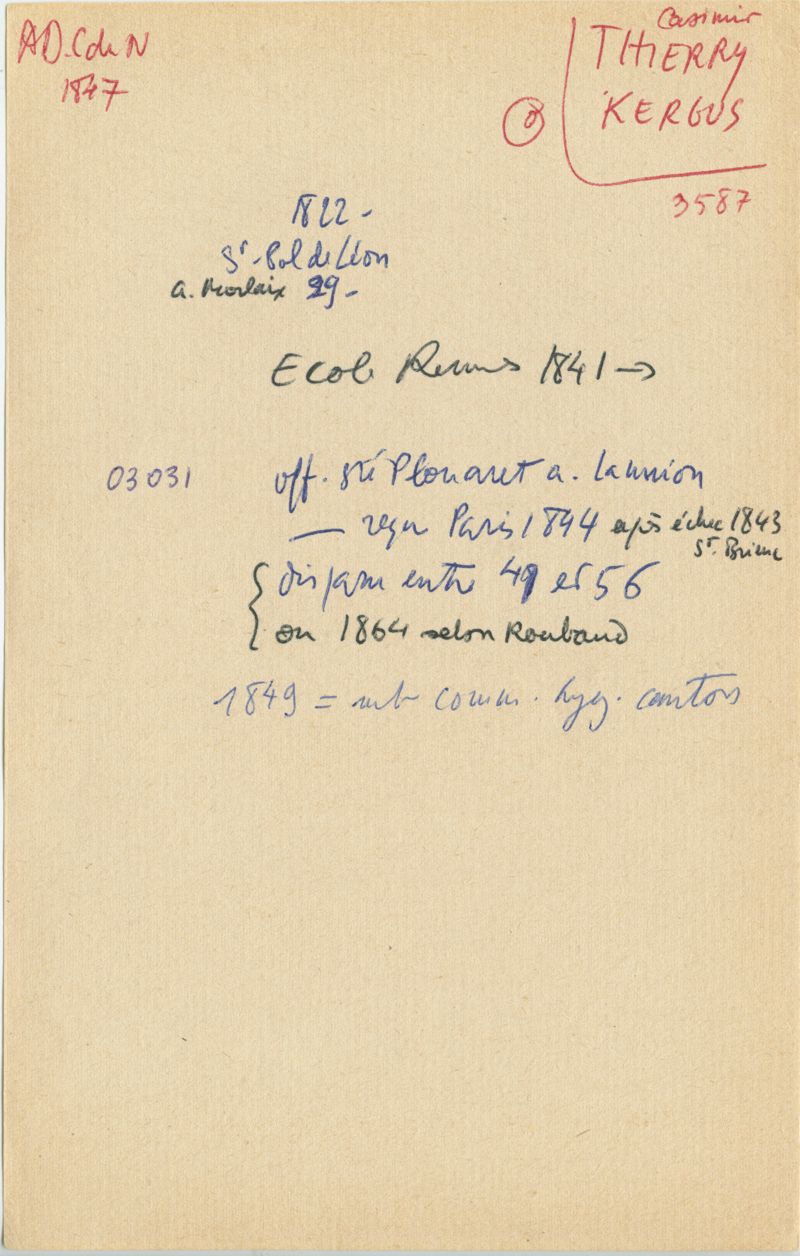 AD. C du N
1847
Casimir
THIERRY
KERGUS
3587
1822 -
St-Pol de Léon
a. Morlaix 29 -
Ecole Rennes 1841 →
03031
off. sté Plouaret a. Lannion
— reçu Paris 1844 après échec 1843
St. Brieuc
disparu entre 49 et 56
ou 1864 selon Roubaud
1849 = mb comm. hyg. cantons